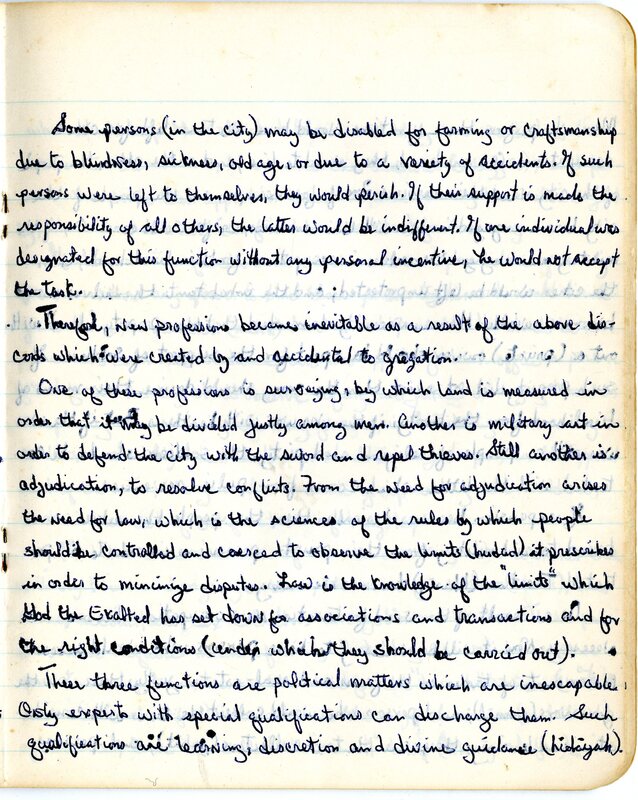 Some persons (in the city) may be disabled for farming or craftsmanship
due to blindness, sickness, old age, or due to a variety of accidents. If such
persons were left to themselves, they would perish. If their support is made the
responsibility of all others, the latter would be indifferent. If one individual was
designated for this function without any personal incentive, he would not accept
the task.
Therefore, new professions became inevitable as a result of the above dis-
cords which were created by and accidental to gregation.
One of these professions is surveying, by which land is measured in
order that it may be divided justly among men. Another is military art in
order to defend the city with the sword and repel thieves. Still another is
adjudication, to resolve conflicts. From the need for adjudication arises
the need for law, which is the sciences of the rules by which people
should be controlled and coerced to observe the limits (hudad) it prescribes
in order to minimize disputes. Law is the knowledge of the "limits" which
God the Exalted has set down for associations and transactions and for
the right conditions (under which they should be carried out).
These three functions are political matters which are inescapable.
Only experts with special qualifications can discharge them. Such
qualifications are learning, discretion and divine guidance (hidayah).